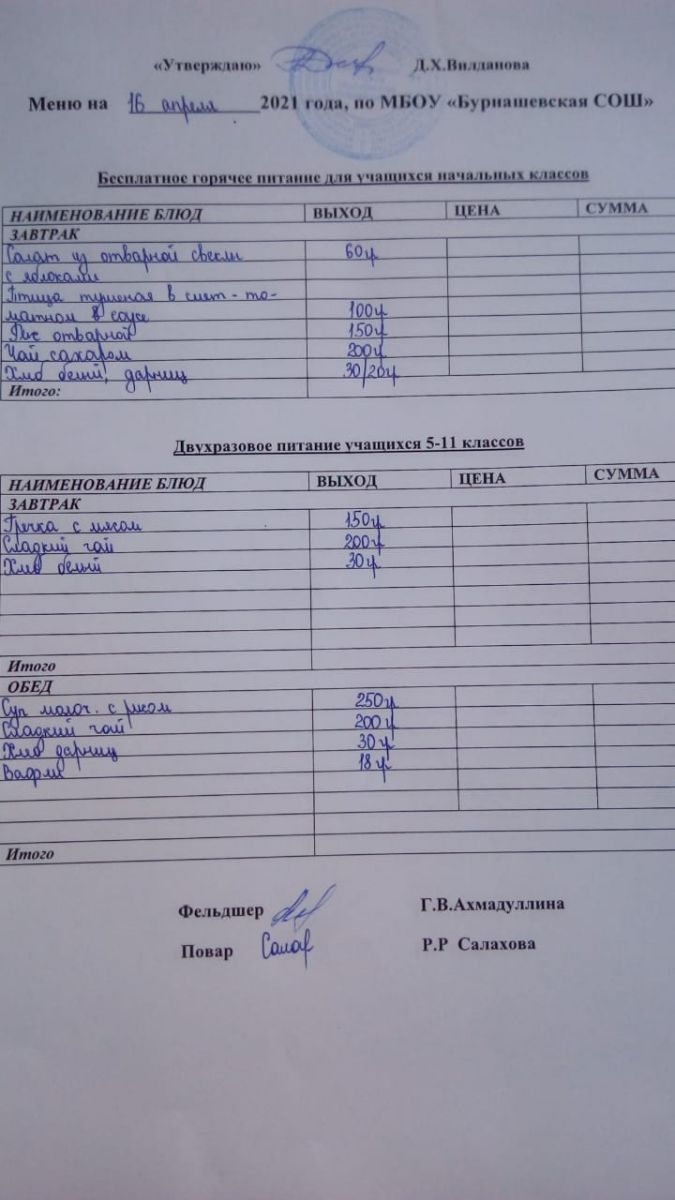 «Утверждаю» Д.Х.Вилданова
Меню на 16 апреля 2021 года, по МБОУ «Бурнашевская СОШ»
Бесплатное горячее питание для учащихся начальных классов
НАИМЕНОВАНИЕ БЛЮД ВЫХОД ЦЕНА СУММА
ЗАВТРАК
Салат из отварной свеклы 60г
с яблоками
Птица тушеная в смет-то-
матном в соусе 100г
Рис отварной 150г
Чай сахаром 200г
Хлеб белый, дарниц 30/20г
Итого:
Двухразовое питание учащихся 5-11 классов
НАИМЕНОВАНИЕ БЛЮД ВЫХОД ЦЕНА СУММА
ЗАВТРАК
Гречка с мясом 150г
Сладкий чай 200г
Хлеб белый 30г
Итого
ОБЕД
Суп молоч. с рисом 250г
Сладкий чай 200г
Хлеб дарниц 30г
Вафли 18г
Итого
Фельдшер Г.В.Ахмадуллина
Повар Салах Р.Р Салахова